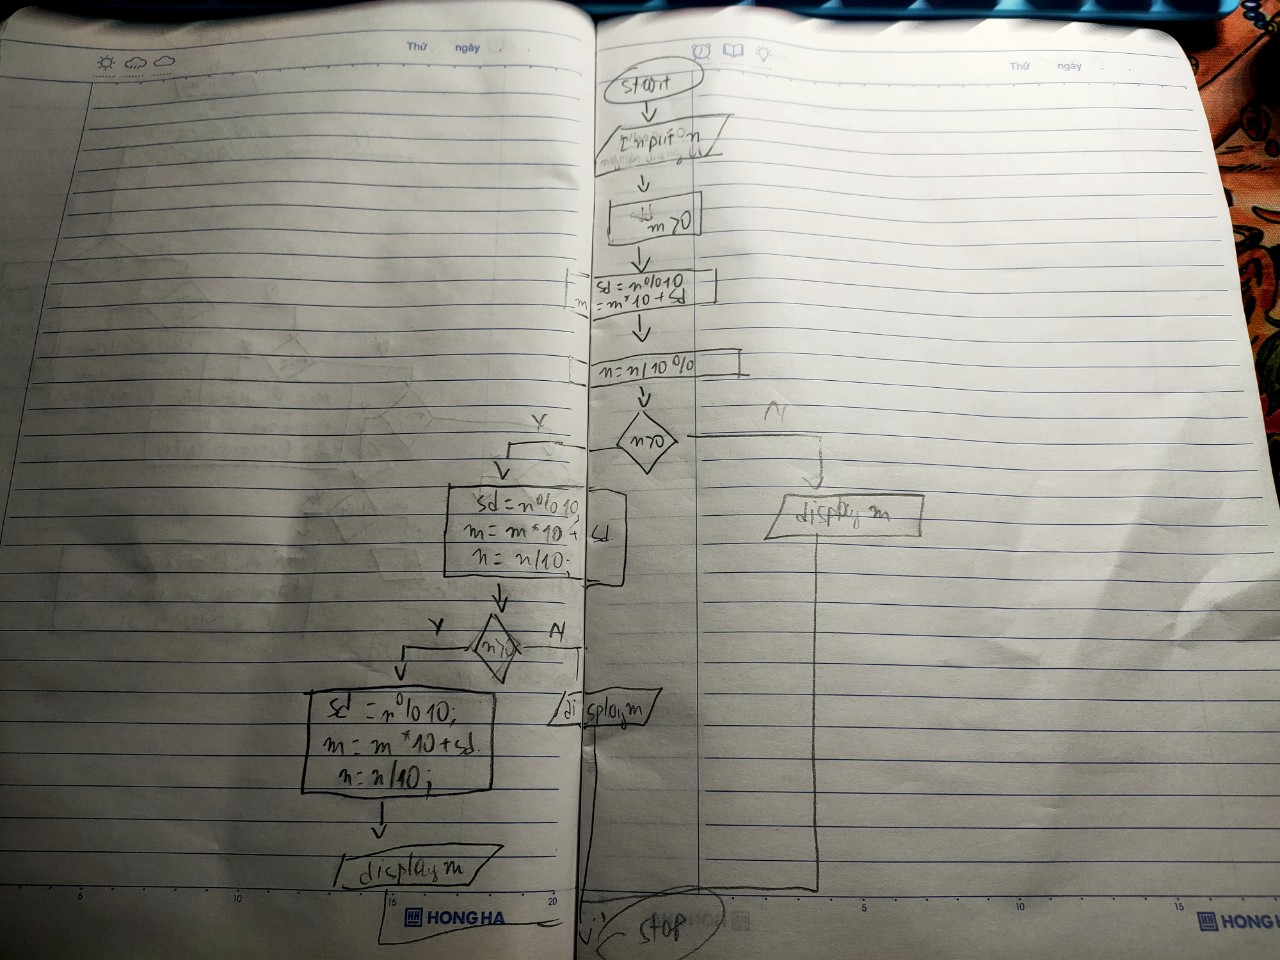 Thứ ngày
Thứ ngày
Start
Input n
sd = n%10
m = m*10 + sd
n = n/10%
Y
N
sd = n%10;
m = m*10 + sd
n = n/10;
display m
Y
N
n>0
sd = n%10;
m = m*10+sd.
n = n/10;
display m
display m
5
10
15
20
5
10
15
HONG HA
HONG HA
stop